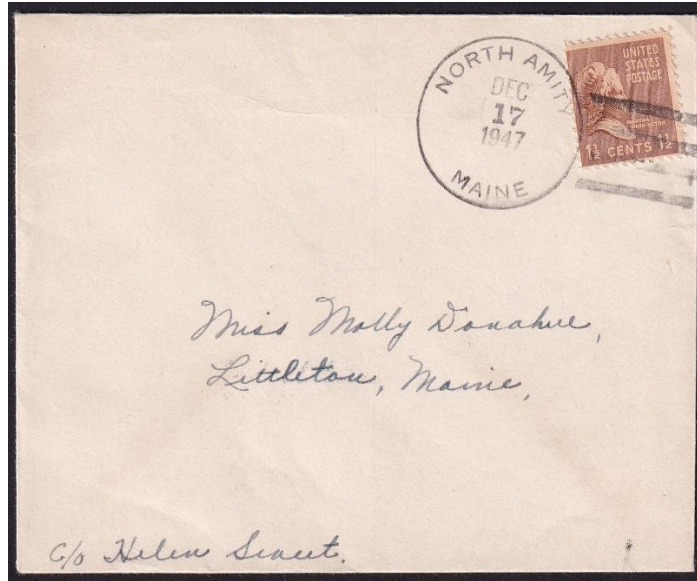 NORTH AMITY
DEC
17
1947
MAINE
UNITED
STATES
POSTAGE
MARTHA
WASHINGTON
1½ CENTS 1½
Miss Molly Donahue,
Littleton, Maine,
c/o Helen